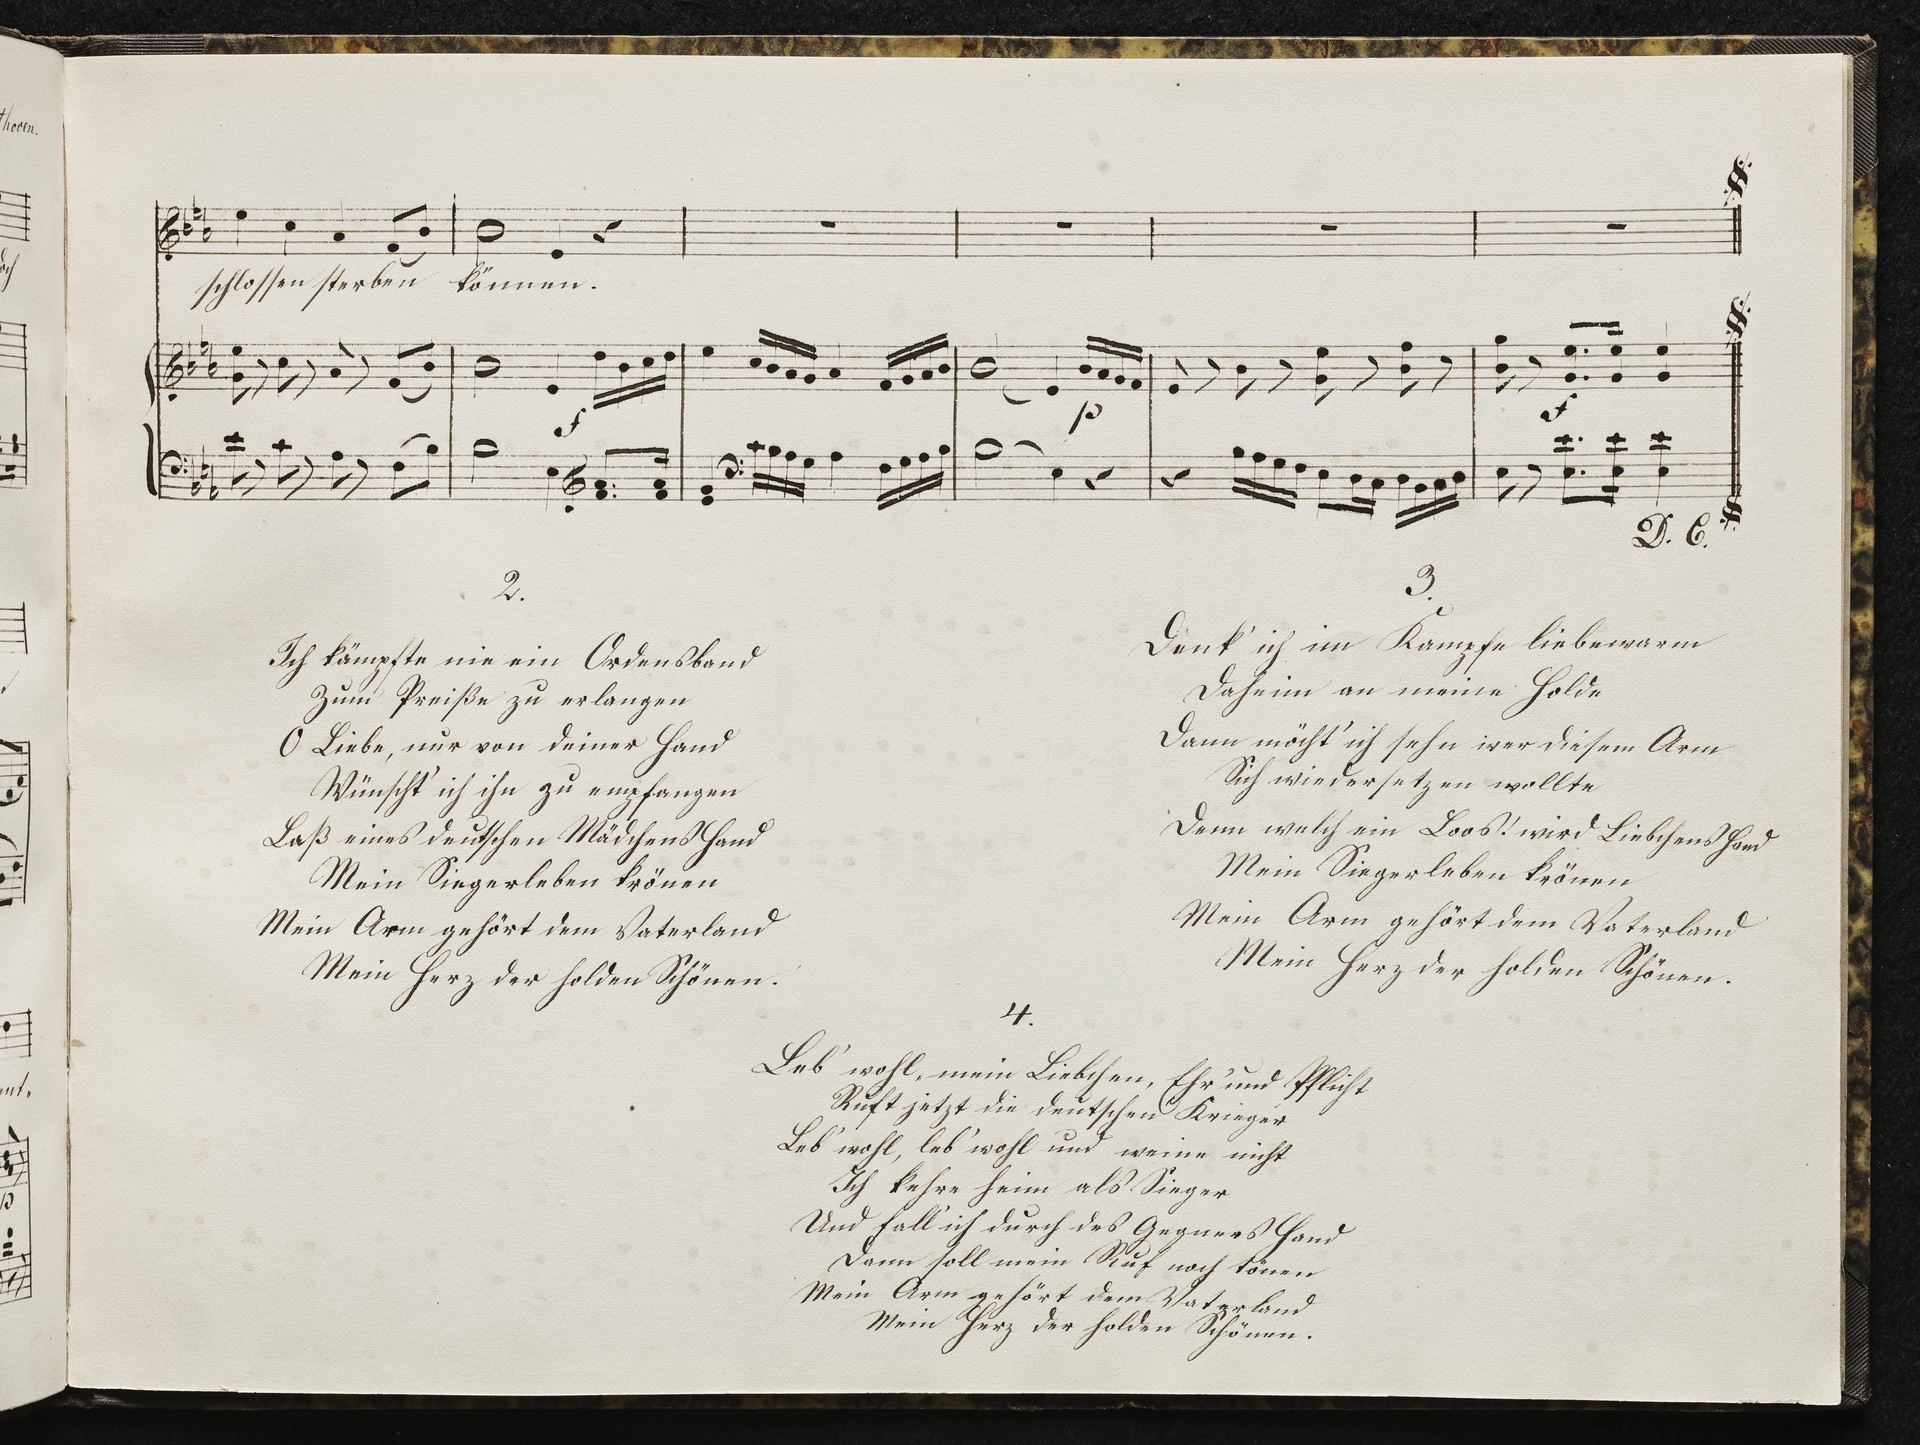 thoven.
schlossen sterben können.
f
p
f
D. C.
2.
Ich kämpfte nie ein Ordensband
Zum Preiße zu erlangen
O Liebe, nur von deiner Hand
Wünscht' ich ihn zu empfangen
Laß eines deutschen Mädchens Hand
Mein Siegerleben krönen
Mein Arm gehört dem Vaterland
Mein Herz der holden Schönen.
3.
Denk' ich im Kampfe liebewarm
Daheim an meine Holde
Dann möcht' ich sehn wer diesem Arm
Sich wiedersetzen wollte
Denn welch ein Loos! wird Liebchens Hand
Mein Siegerleben krönen
Mein Arm gehört dem Vaterland
Mein Herz der holden Schönen.
4.
Leb' wohl, mein Liebchen, Ehr' und Pflicht
Ruft jetzt die deutschen Krieger
Leb' wohl, leb' wohl und weine nicht
Ich kehre heim als Sieger
Und fall' ich durch des Gegners Hand
Dann soll mein Ruf noch tönen
Mein Arm gehört dem Vaterland
Mein Herz der holden Schönen.